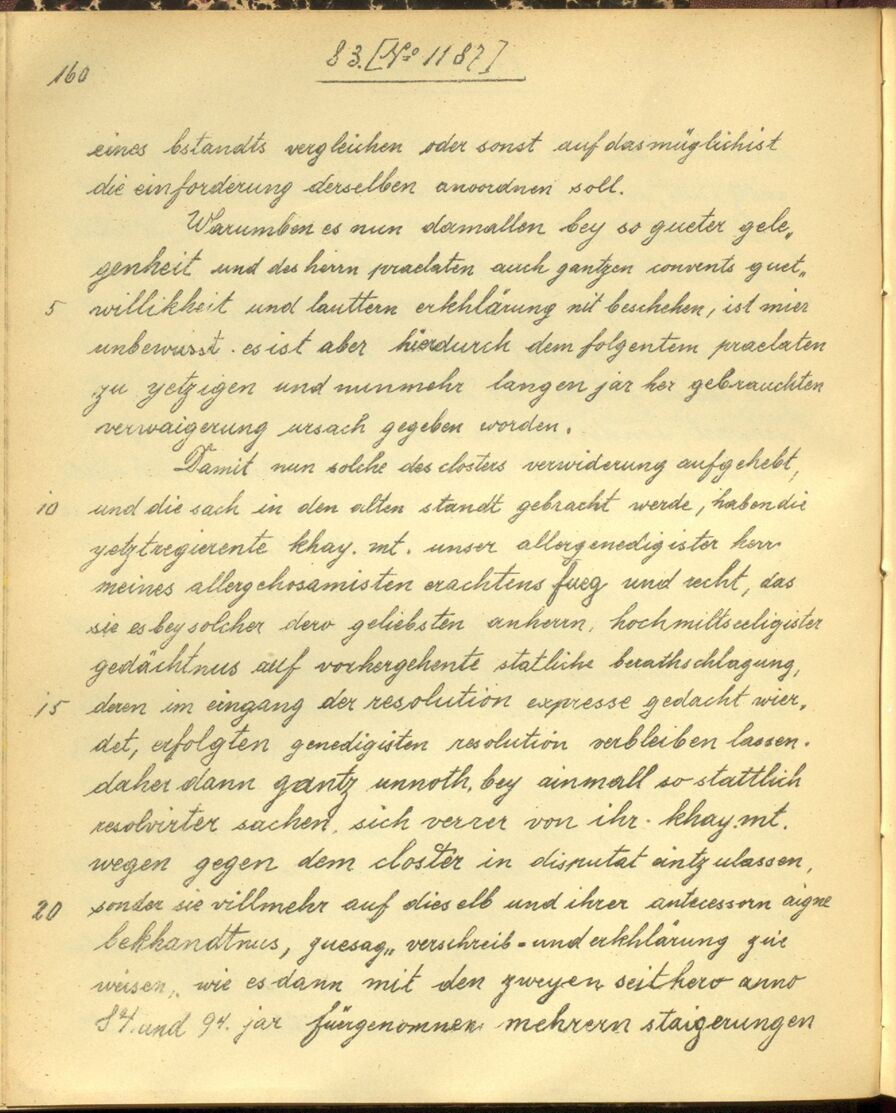 160
83. [No 1187]
eines bstandts vergleichen oder sonst auf das müglichist
die einforderung derselben anoordnen soll.
Warumben es nun damallen bey so gueter gele„
genheit und des herrn praelaten auch gantzen convents guet„
5 willikheit und lauttern erkhlärung nit beschehen, ist mier
unbewusst. es ist aber hierdurch dem folgentem praelaten
zu yetzigen und nunmehr langen jar her gebrauchten
verwaigerung ursach gegeben worden.
Damit nun solche des closters verwiderung aufgehebt,
10 und die sach in den alten standt gebracht werde, haben die
yetztregierente khay. mt. unser allergenedigister herr
meines allergehosamisten erachtens fueg und recht, das
sie es bey solcher dero geliebsten anherrn, hochmiltseeligister
gedächtnus auf vorhergehente statliche berathschlagung,
15 deren im eingang der resolution expresse gedacht wier„
det, erfolgten genedigisten resolution verbleiben lassen.
daher dann gantz unnoth, bey ainmall so stattlich
resolvirter sachen, sich verrer von ihr. khay. mt.
wegen gegen dem closter in disputat aintzulassen,
20 sonder sie villmehr auf dieselb und ihrer antecessorn aigne
bekhandtnus, zuesag„ verschreib- und erkhlärung zue
weisen, wie es dann mit den zweyen seithero anno
84. und 94. jar fürgenomnen mehrern staigerungen